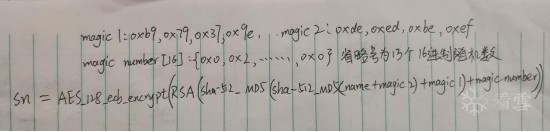 magic 1:0xb9, 0x79, 0x37, 0x9e, magic 2: 0xde, 0xed, 0xbe, 0xef
magic number [16]:{0x0, 0x2, ......, 0x0} 省略号为13个16进制随机数
Sn = AES_128_ecb_encrypt(RSA(sha-512_MD5(sha-512_MD5(name+magic 2)+magic 1)+magic number))
看雪